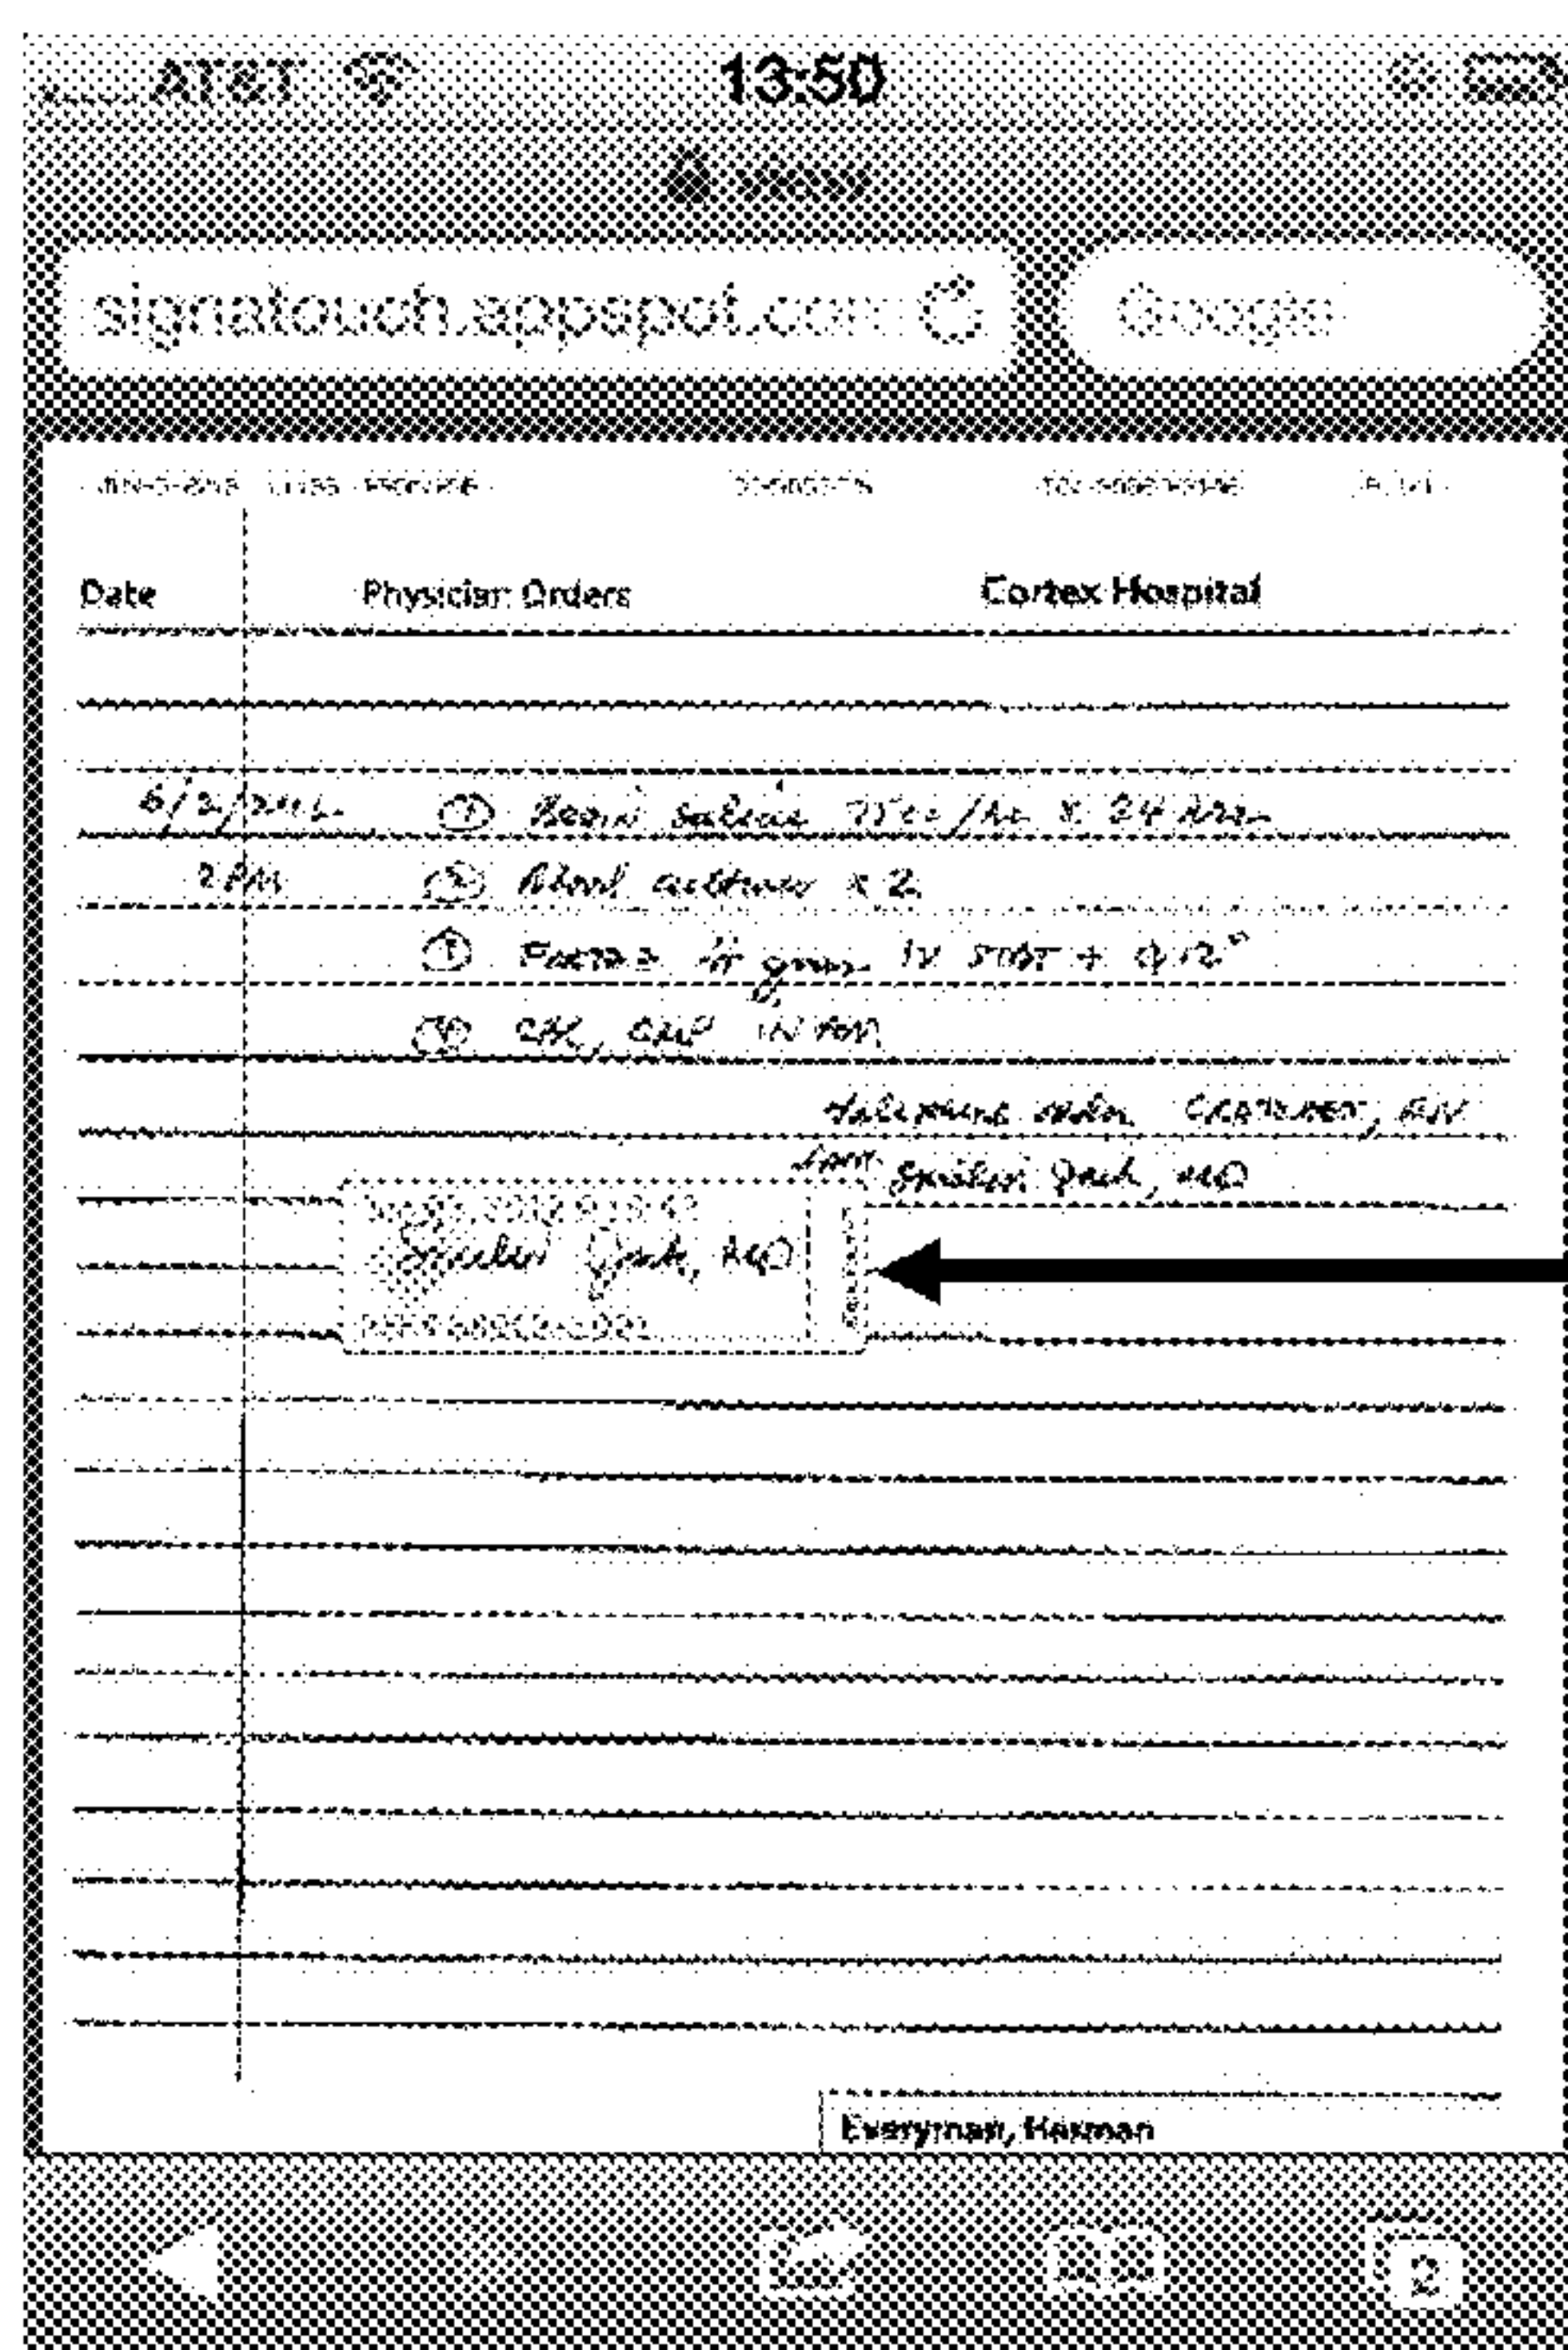 AT&T 13:50
signatouch.appspot.com Google
Date Physician Orders Cortex Hospital
6/2/2012 ① Begin saline 75cc/hr x 24 hrs
2PM ② Blood cultures x 2
③ gram IV STAT + q 12°
④ CBC, CMP IN AM
telephone order RN
Smilin Jack, MD
Smilin Jack, MD
Everyman, Herman
2